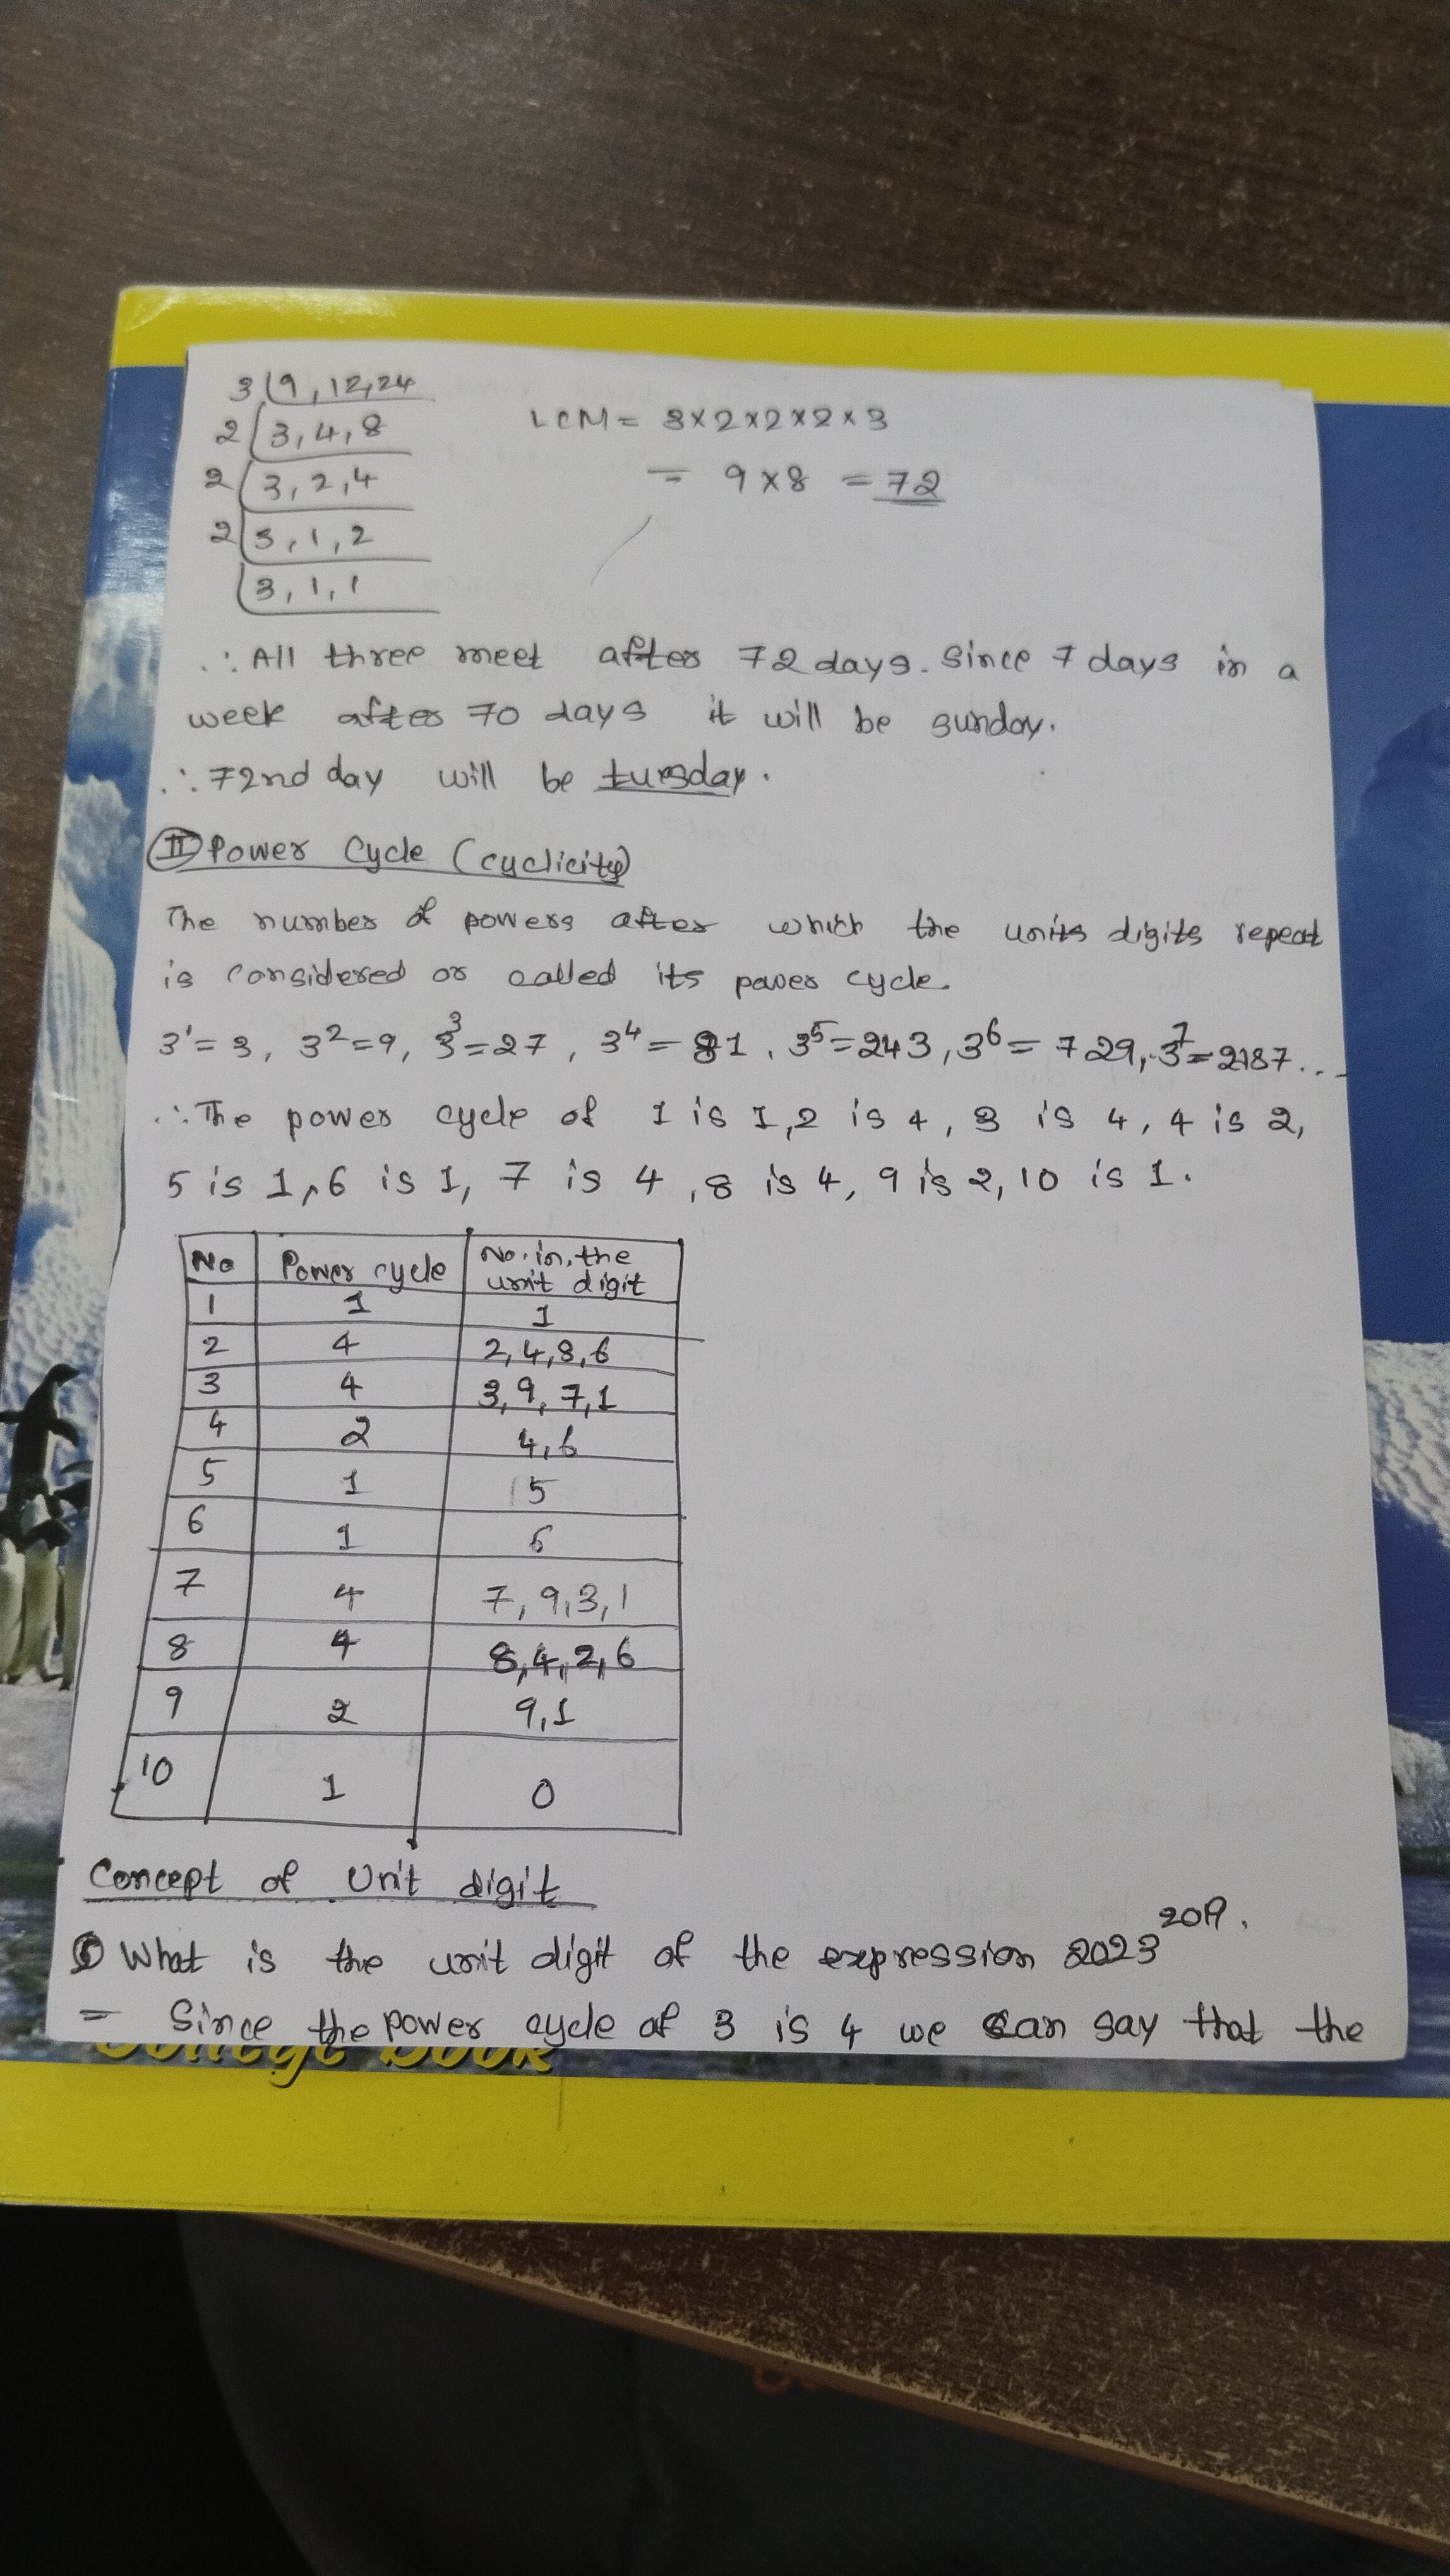 3 9, 12, 24
2 3, 4, 8
2 3, 2, 4
2 3, 1, 2
3, 1, 1
LCM = 3×2×2×2×3
= 9×8 = 72
∴ All three meet after 72 days. Since 7 days in a
week after 70 days it will be sunday.
∴ 72nd day will be tuesday.
II Power Cycle (cyclicity)
The number of powers after which the units digits repeat
is considered or called its power cycle.
3¹ = 3, 3² = 9, 3³ = 27, 3⁴ = 81, 3⁵ = 243, 3⁶ = 729, 3⁷ = 2187...
∴ The power cycle of 1 is 1, 2 is 4, 3 is 4, 4 is 2,
5 is 1, 6 is 1, 7 is 4, 8 is 4, 9 is 2, 10 is 1.
No Power cycle No. in the unit digit
1 1 1
2 4 2,4,8,6
3 4 3,9,7,1
4 2 4,6
5 1 5
6 1 6
7 4 7,9,3,1
8 4 8,4,2,6
9 2 9,1
10 1 0
Concept of Unit digit
What is the unit digit of the expression 2023²⁰¹⁹.
= Since the power cycle of 3 is 4 we can say that the
College Book